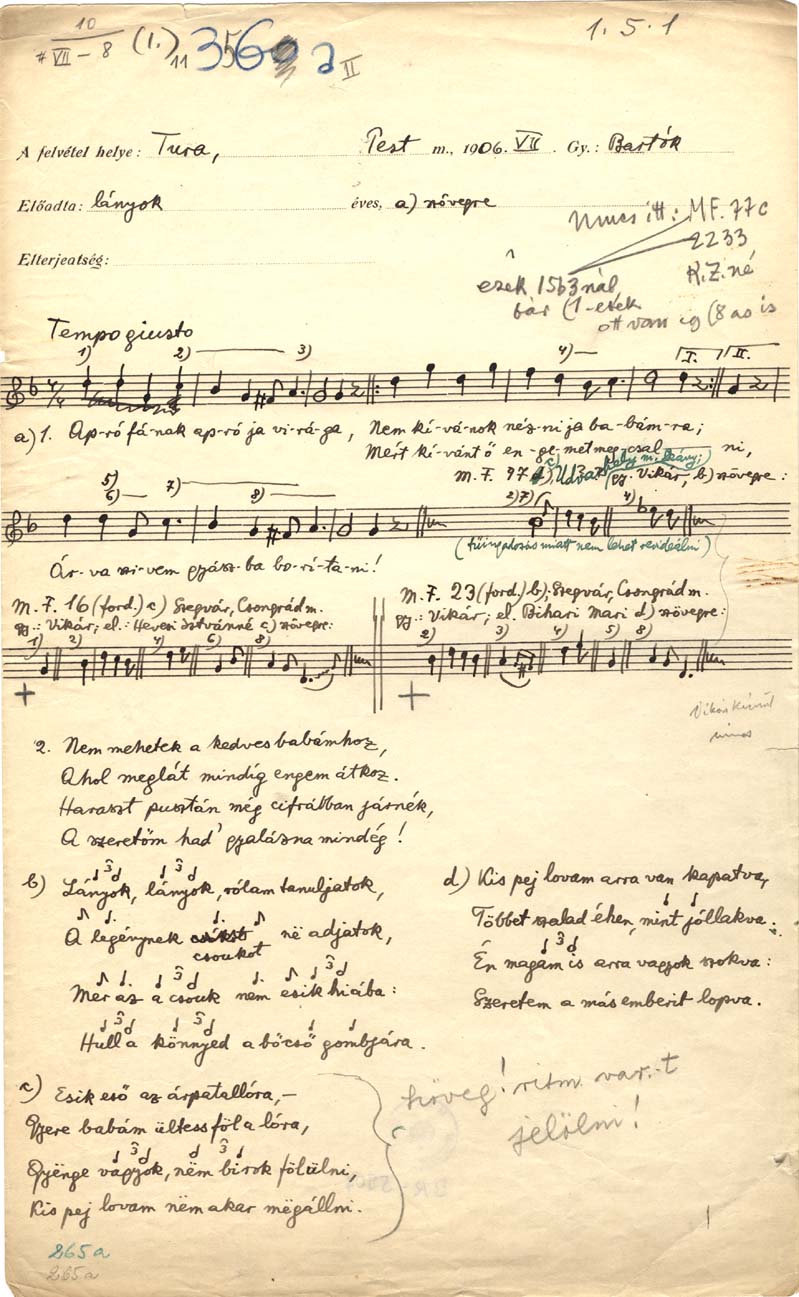 10
VII – 8 (1.) 11 356 a II
1. 5. 1
A felvétel helye: Tura, Pest m., 1906. VII Gy.: Bartók
Előadta: lányok éves, a) szövegre
Elterjeatség:
nincs itt: M.F. 77c
2233
R.Z.né
ezek 1563nál
bár (1-esek
ott van (8 as is
Tempo giusto
1) 2) 3) 4) I. II.
a) 1. Ap-ró fá-nak ap-ró ja vi-rá-ga, Nem kí-vá-nok néz-ni ja ba-bám-ra;
Mért kí-vánt ő en-ge-met meg-csal ni,
M.F. 97 (gy. Vikár, b) szövegre:
5) 6) 7) 8) 2) 7) 4)
(tűingadozás miatt nem lehet revideálni)
Ár-va szi-vem gyász-ba bo-rí-ta-ni!
M.F. 16 (ford.) c) Szegvár, Csongrád m.
gy.: Vikár; el.: Hevesi Istvánné c) szövegre:
M.F. 23 (ford.) b): Szegvár, Csongrád m.
gy.: Vikár; el. Bihari Mari d) szövegre:
1) 2) 4) 6) 8)
2) 3) 4) 5) 8)
nincs
2. Nem mehetek a kedves babámhoz,
Ahol meglát mindíg engem átkoz.
Haraszt pusztán még cifrábban járnék,
A szeretőm had' gyalázna mindég!
b) Lányok, lányok, rólam tanuljatok,
A legénynek csókot në adjatok,
csoukot
Mer az a csouk nem esik hiába:
Hull a könnyed a bőcső gombjára.
d) Kis pej lovam arra van kapatva,
Többet szalad éhen, mint jóllakva.
Én magam is arra vagyok szokva:
Szeretem a más emberit lopva.
c) Esik eső az árpatallóra,–
Gyere babám ültess föl a lóra,
Gyënge vagyok, nëm birok fölülni,
Kis pej lovam nëm akar mëgállni.
szöveg! ritm. var.-t
jelölni!
265a
265a